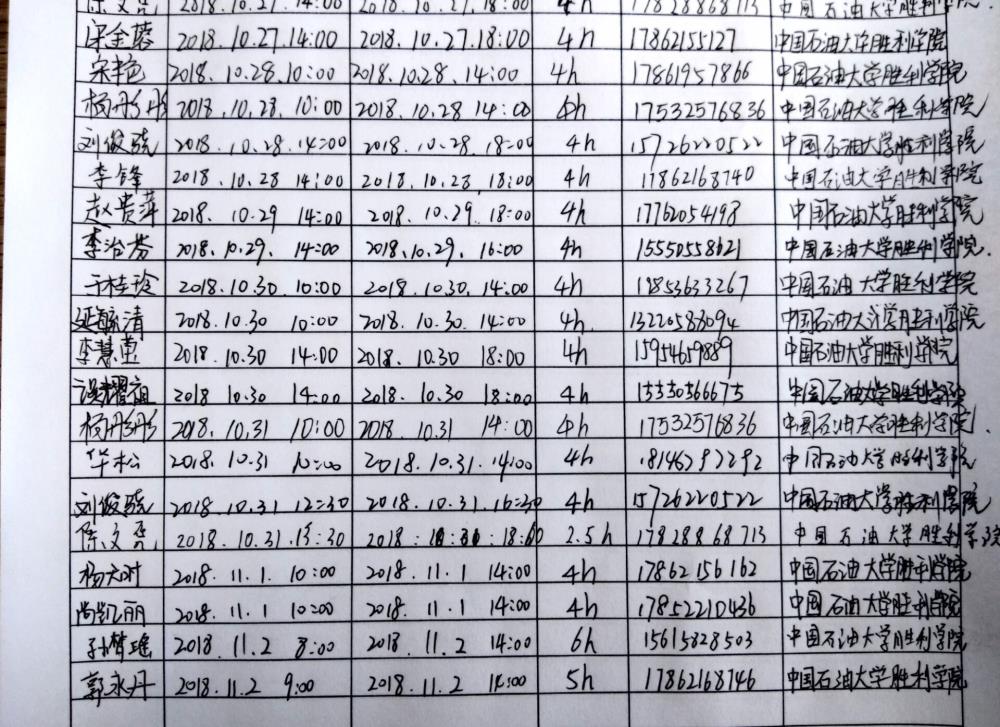 2018.10.27.14:00 2018.10.27.18:00 4h 17828868713 中国石油大学胜利学院.
宋金蓉 2018.10.27.14:00 2018.10.27.18:00 4h 17862155127 中国石油大学胜利学院
宋艳 2018.10.28.10:00 2018.10.28.14:00 4h 17861957866 中国石油大学胜利学院
杨彤彤 2018.10.28.10:00 2018.10.28 14:00 4h 17532576836 中国石油大学胜利学院
刘俊骁 2018.10.28.14:00 2018.10.28.18:00 4h 15726220522 中国石油大学胜利学院
李锋 2018.10.28 14:00 2018.10.28.18:00 4h 17862168740 中国石油大学胜利学院
赵贵萍 2018.10.29 14:00 2018.10.29.18:00 4h 17762054198 中国石油大学胜利学院
李治芬 2018.10.29. 14:00 2018.10.29. 16:00 4h 15550558621 中国石油大学胜利学院.
于桂玲 2018.10.30.10:00 2018.10.30.14:00 4h 19853633267 中国石油大学胜利学院
延毓清 2018.10.30 10:00 2018.10.30.14:00 4h. 中国石油大学胜利学院
李慧莹 2018.10.30 14:00 2018.10.30 18:00 4h 15954659889 中国石油大学胜利学院
耀祖 2018 10.30 14:00 2018.10.30 18:00 4h 中国石油大学胜利学院
杨彤彤 2018.10.31 10:00 2018.10.31 14:00 4h 17532576836 中国石油大学胜利学院.
华松 2018.10.31 10:00 2018.10.31.14:00 4h 18146292292 中国石油大学胜利学院
刘俊骁 2018.10.31 12:30 2018.10.31.16:30 4h 15726220522 中国石油大学胜利学院
陈文亮 2018.10.31.15:30 2018 2.5h 17828868713 中国石油大学胜利学院
杨天时 2018.11.1. 10:00 2018.11.1 14:00 4h 17862156162 中国石油大学胜利学院
尚凯丽 2018.11.1 10:00 2018.11.1 14:00 4h 17852210436 中国石油大学胜利学院
孙梦瑶 2018 11.2 8:00 2018.11.2 14:00 6h 15615828503 中国石油大学胜利学院
郭永丹 2018.11.2 9:00 2018.11.2 14:00 5h 17862168746 中国石油大学胜利学院